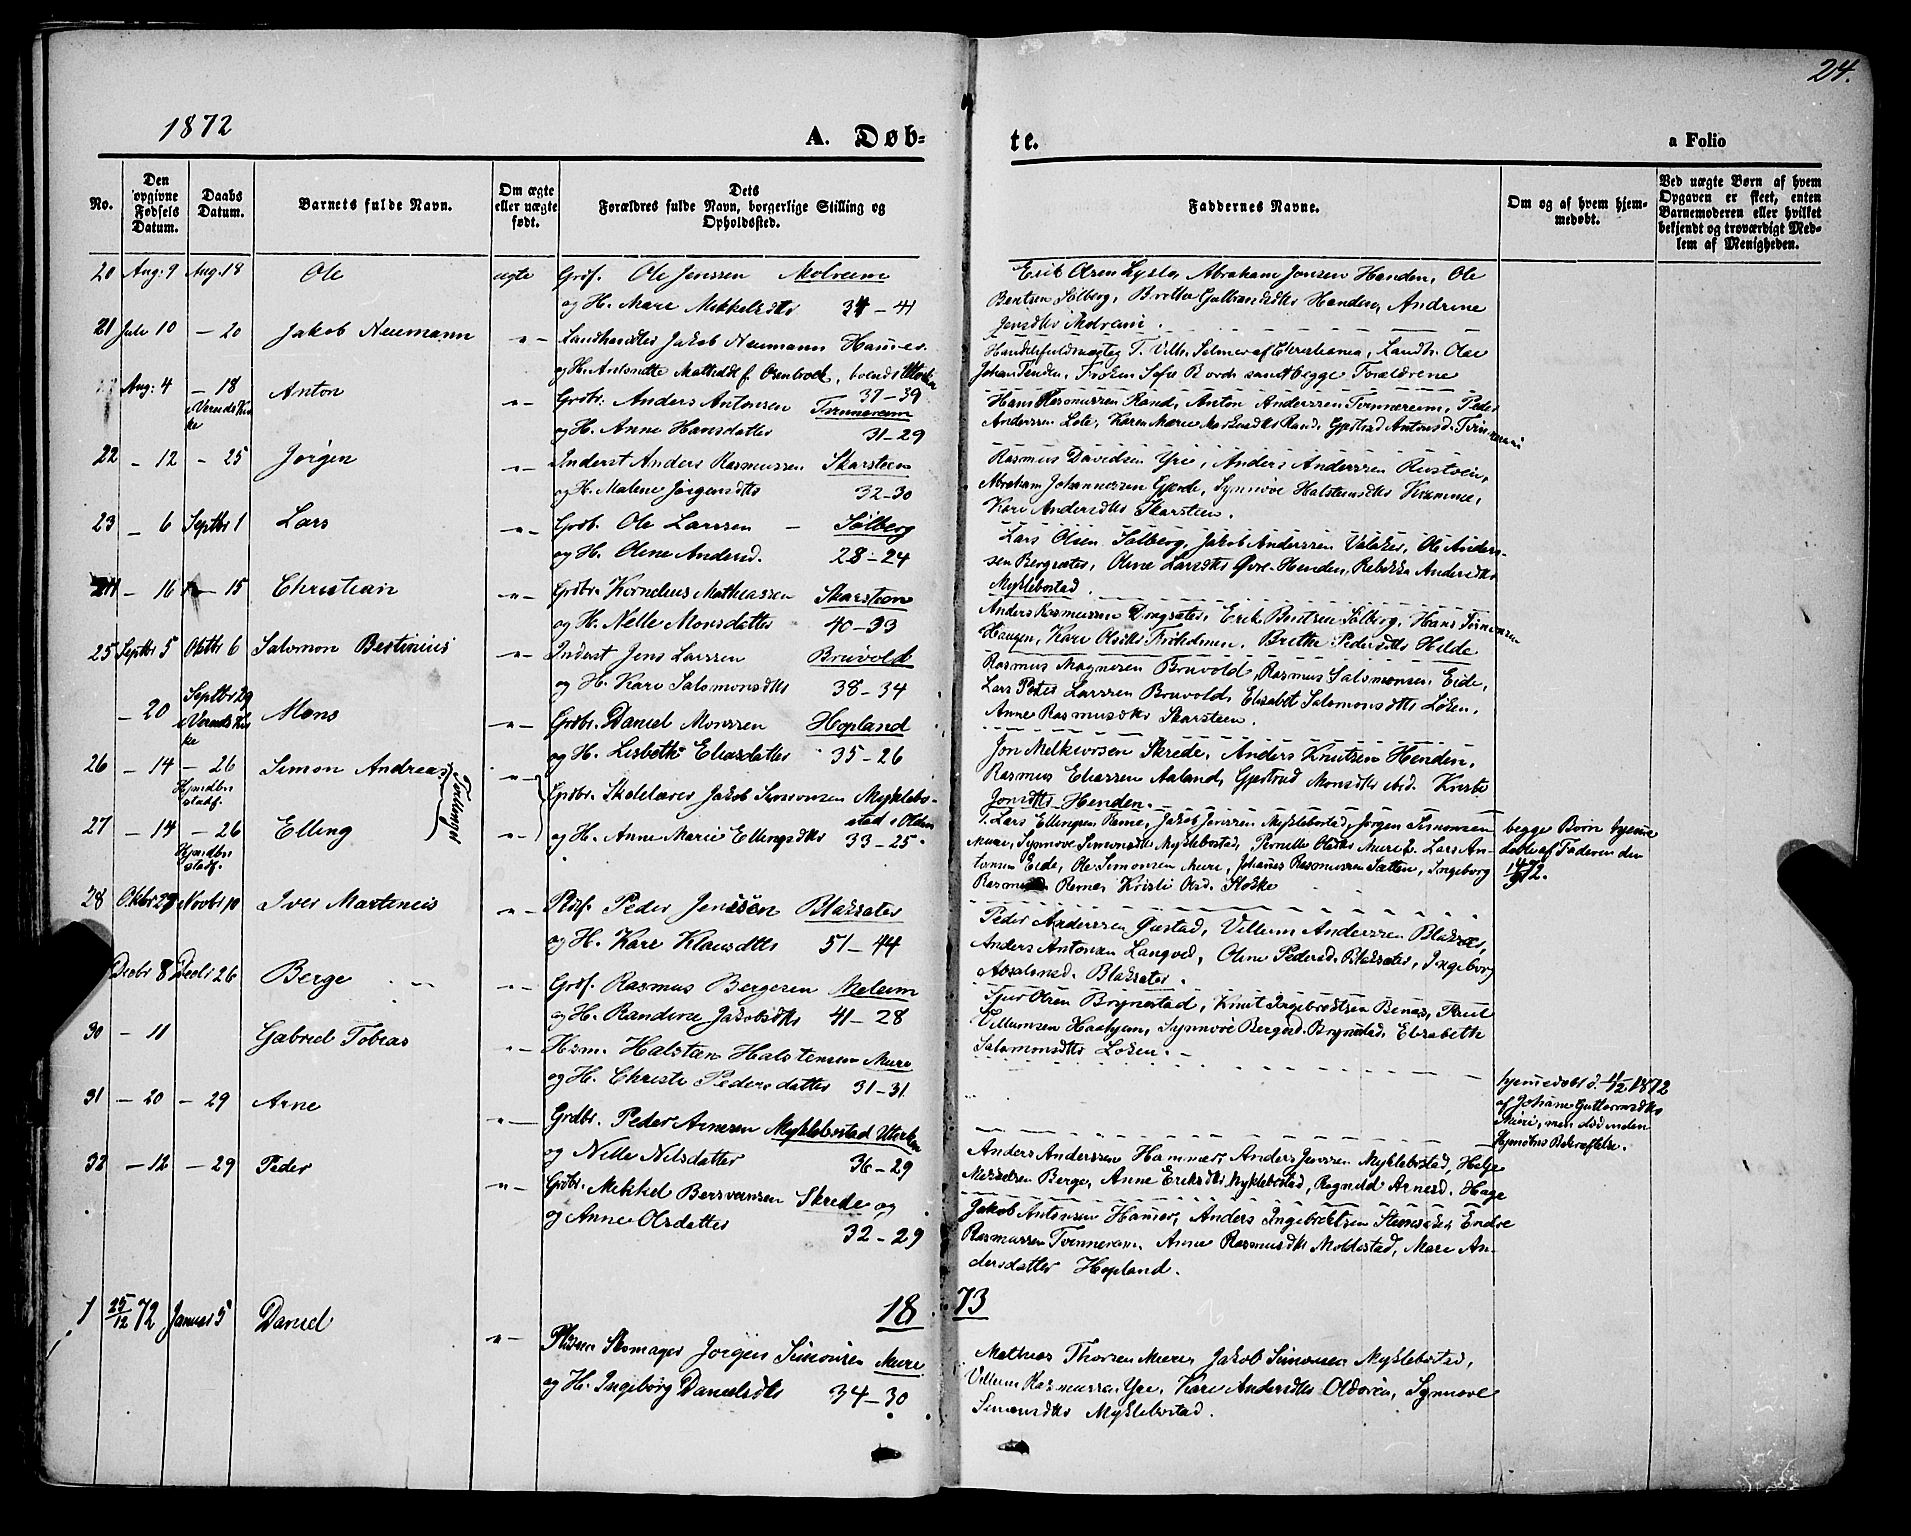 24.
1872
A. Døb-
te.
a Folio
No.
Den opgivne Fødsels Datum.
Daabs Datum.
Barnets fulde Navn.
Om ægte eller uægte født.
Dets Forældres fulde Navn, borgerlige Stilling og Opholdssted.
Faddernes Navne.
Om og af hvem hjemmedøbt.
Ved uægte Børn af hvem Opgaven er skeet, enten Barnemoderen eller hvilket bekjendt og troværdigt Medlem af Menigheden.
20 Aug: 9 Aug. 18 Ole ægte Grdf. Ole Jenssen Molreim
og H. Mari Mikkelsdtr 34 - 41
Erik Olsen Lyslo, Abraham Jonsen Henden, Ole
Bentsen Solberg, Henden, Andrine
Jensdtr Molreim.
21 Juli 10 - 20 Jakob Neumann -"- Landhandler Jakob Neumann Hammer
og H. Antonette
37 - 39
T. Vilh. Selmer af Christiania, Landh. Ole
Johan Tenden, Frøken Sofie samt begge Forældrene
Aug: 4 - 18 Anton -"- Grdbr. Anders Antonsen Tvinnereim
og H. Anne Hansdatter 31 - 29
Hans Rasmussen Rand, Anton Anderssen Tvinnereim, Peder
Anderssen Lote, Karen Marie Rand, Gjertrud Antonsd. Tvinnereim
22 - 12 - 25 Jørgen -"- Inderst Anders Rasmussen Skarsteen
og H. Malene Jørgensdtr 32 - 30
Rasmus Davidsen Yri, Anders Anderssen Rustøen,
Abraham Johannessen Gjerde, Synnøve Halsteinsdtr
Kari Andersdtr Skarsteen.
23 - 6 Septbr 1 Lars -"- Grdb. Ole Larssen - Solberg
og H. Oline Andersd. 28 - 24
Lars Olsen Solberg, Jakob Anderssen Valaker, Ole Anders-
sen Bergsæter, Oline Larsdtr Øvre-Henden, Rebekka Andersdtr
Myklebostad.
24 - 16 - 15 Christian -"- Grdbr. Kornelius Mathiassen Skarsteen
og H. Nelle Monsdatter 40 - 33
Anders Rasmussen Dragsæter, Erik Bentsen Solberg, Hans
Haugen, Kari Olsdtr Brithe Pedersdtr Helde
25 Septbr 5 Oktbr 6 Salomon Bertinius -"- Inderst Jens Larssen Bruvold
og H. Kari Salomonsdtr 38 - 34
Rasmus Magnesen Bruvold, Rasmus Salomonsen Eide,
Lars Peter Larssen Bruvold, Elisabet Salomonsdtr Løken,
Anne Rasmusdtr Skarsteen.
- 20 Septbr 29 Mons -"- Grdbr. Daniel Monssen Hopland
og H. Lisbeth Eliasdatter 35 - 26
Jon Melkiorsen Skrede, Anders Knutsen Henden,
Rasmus Eliassen Aaland, Gjertrud Monsdtr ibid. Kristi
Jonsdtr Henden.
26 - 14 - 26 Simon Andreas -"- Grdbr. Skolelærer Jakob Simonsen Myklebo-
stad i Olden
27 - 14 - 26 Elling Tvillinger -"- og H. Anne Marie Ellingsdtr 33 - 25
Lars Ellingsen Reme, Jakob Jenssen Myklebostad, Jørgen Simonsen
Muri, Synnøve Simonsdtr Myklebostad, Pernille Olsdtr Muri 2. Lars An-
tonsen Eide, Ole Simonsen Muri, Johanes Rasmussen Sætten, Ingeborg
Rasmusd. Reme, Kristi Olsd.
begge Børn hjemme
døbte af Faderen den
14/9 72.
28 Oktbr 27 Novbr 10 Iver Martinius -"- Peder Jenssen Blaksæter
og H. Kari Klausdtr 51 - 44
Peder Anderssen Øiestad, Villum Anderssen Blaksæt,
Anders Antonsen Langved, Oline Pedersd. Blaksæter, Ingeborg
Absalonsd. Blaksæter.
Decbr 8 Decbr 26 Berge -"- Grdf. Rasmus Bergesen Meleim
og H. Randine Jakobsdtr 41 - 28
Sjur Olsen Brynestad, Knut Ingebrigtsen Benes, Knut
Villumsen Haahjem, Synnøve Bergesd. Brynestad, Elisabeth
Salomonsdtr Løken.
30 - 11 Gabriel Tobias -"- Hsm. Halsten Halstensen Muri
og H. Christi Pedersdatter 31 - 31
hjemmedøbt d. 11/12 1872
af Johanne Guttormsdtr
Muri, men død inden
Hjemdøbs Bekræftelse.
31 - 20 - 29 Arne -"- Grdbr. Peder Arnesen Myklebostad
og Nille Nilsdatter 36 - 29
Anders Anderssen Hammer, Anders Jenssen Myklebostad, Helge
Berge, Anne Eriksdtr Myklebostad, Ragnild Arnesd. Hage
32 - 12 - 29 Peder -"- Grdbr. Mikkel Bersvensen Skrede og
og Anne Olsdatter 32 - 29
Jakob Antonsen Hamer, Anders Ingebretsen Endre
Rasmussen Tvinnereim, Anne Rasmusdtr Moldestad, Mari An-
dersdatter Hopland.
18 73
1 25/12 72 Januar 5 Daniel -"- Skomager Jørgen Simonsen Muri
og H. Ingeborg Danielsdtr 34 - 30
Mathias Thorsen Muri, Jakob Simonsen Myklebostad,
Villum Rasmussen Yri, Kari Andersdtr Oldøren, Synnøve
Simonsdtr Myklebostad.